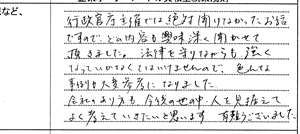 見など、
行政官庁主催では絶対聞けなかったお話
ですので、どの内容も興味深く聞かせて
頂きました。法律を守りながらも、強く
なっていかなくてはいけませんので、色んな
事例も大変参考になりました。
会社のあり方も、今後の世の中・人を見据えて
よく考えていきたいと思います 有難うございました